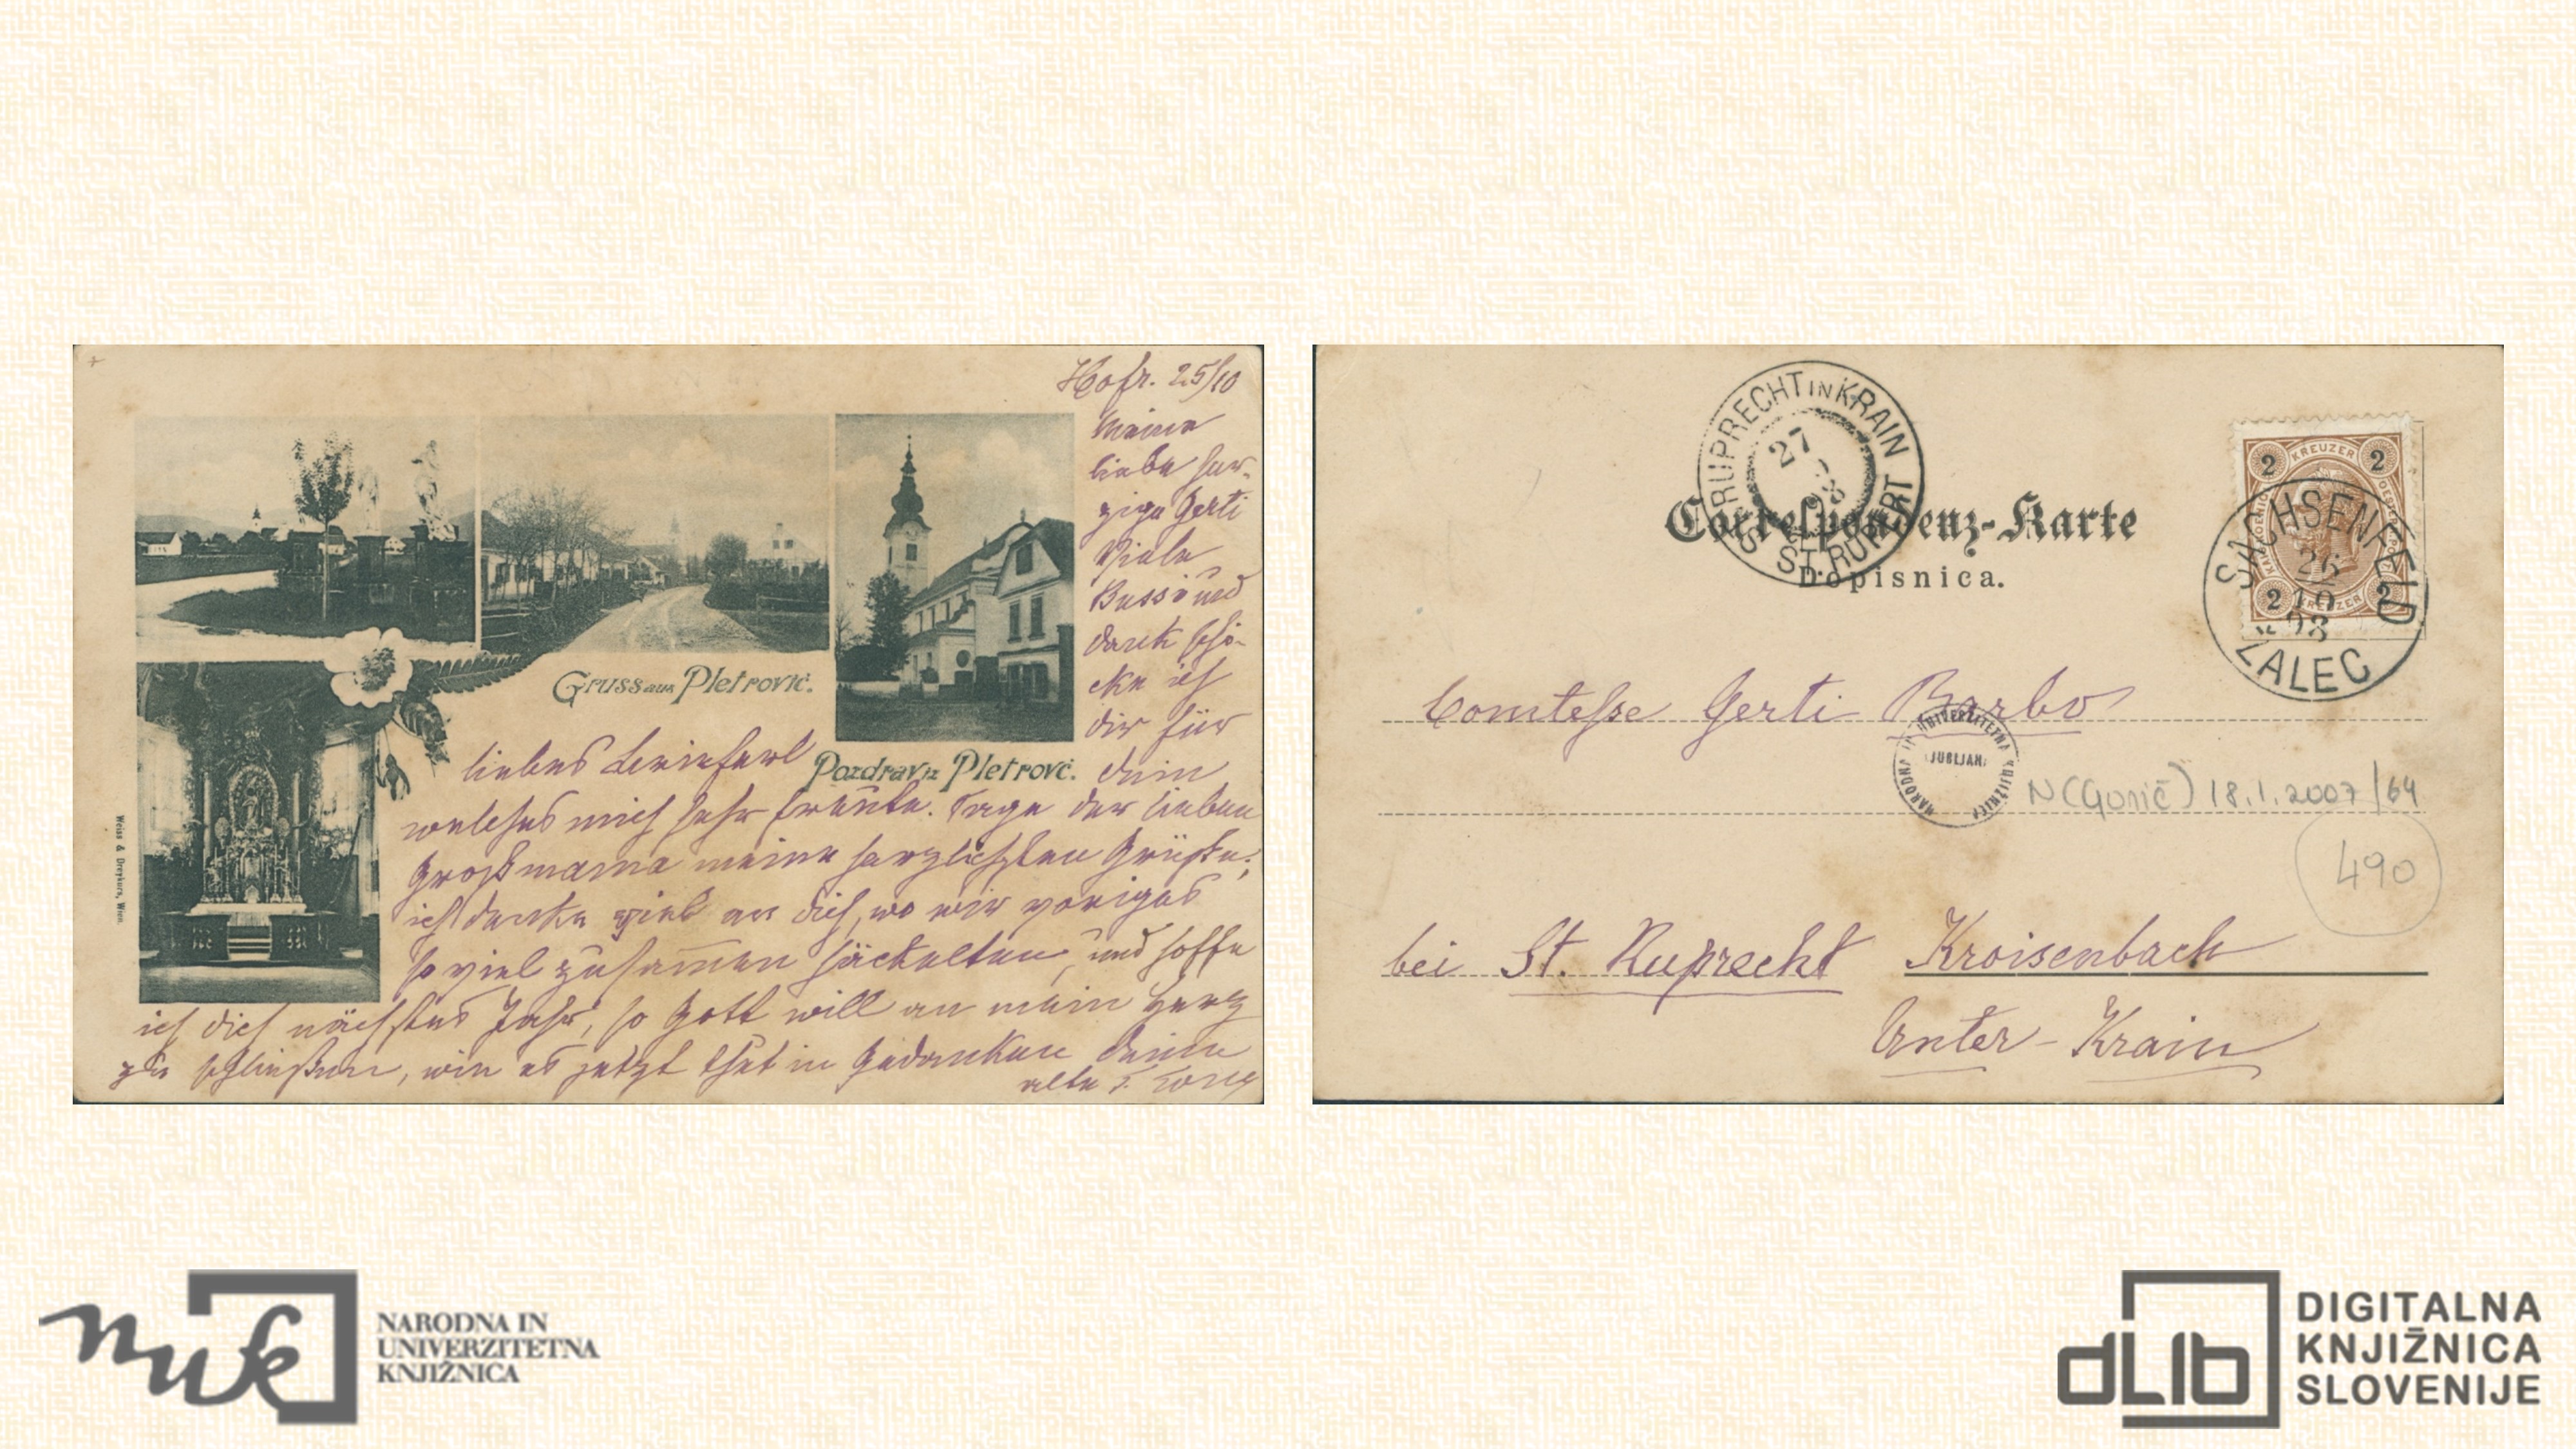 Hofr. 25/10
Meine
liebe her-
zige Gerti
Viele
Bussi und
Dank schi-
cke ich
dir für
dein
liebes Brieferl
welches mich sehr freute. Sage der lieben
Großmama meine herzlichsten Grüße;
ich denke viel an dich, wo wir voriges
so viel zusammen häckelten, und hoffe
ich dich nächstes Jahr, so Gott will an mein Herz
zu schließen, wie es jetzt thut in Gedanken deine
alte T.
Gruss aus Pletrovič.
Pozdrav iz Pletrovč.
Weiss & Dreykurs, Wien.
S. RUPRECHT IN KRAIN
ST. RUPERT
27
98
Correspondenz-Karte
Dopisnica.
KREUZER
2 2
2 2
KREUZER
SACHSENFELD
26
10
98
ŽALEC
Comtesse Gerti Barbo
NARODNA IN UNIVERZITETNA KNJIŽNICA
LJUBLJANA
N (Gorič) 18.1.2007/64
490
bei St. Ruprecht Kroisenbach
Unter-Krain
nuk
NARODNA IN
UNIVERZITETNA
KNJIŽNICA
dLib
DIGITALNA
KNJIŽNICA
SLOVENIJE